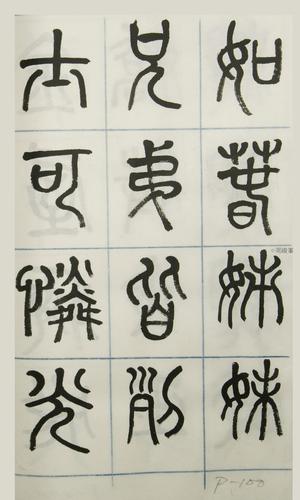 如萅姊妹
兄弟皆列
土可憐光
P-100